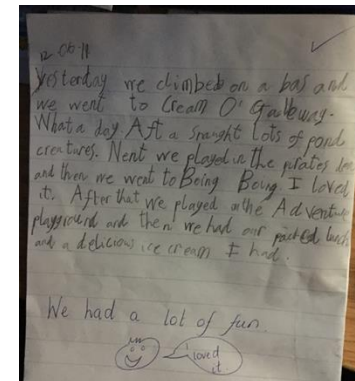 12 06 11
Yesterday we climbed on a bas and
we went to Cream O' Galloway.
What a day. Aft a Lots of pond
creatures. Nent we played in the pirates
and then we went to Boing Boing. I loved
it. After that we played the Adventure
playground and then we had our packed lunch
and a delicious ice cream I had.
We had a lot of fun.
I loved
it.